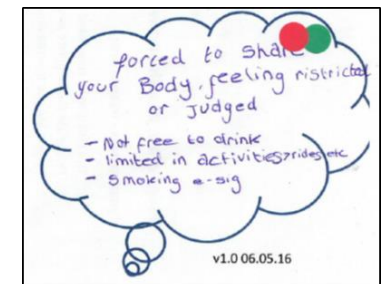 forced to share
your Body, feeling ristricted
or Judged
- Not free to drink
- limited in activities>rides etc
- smoking e-sig
v1.0 06.05.16